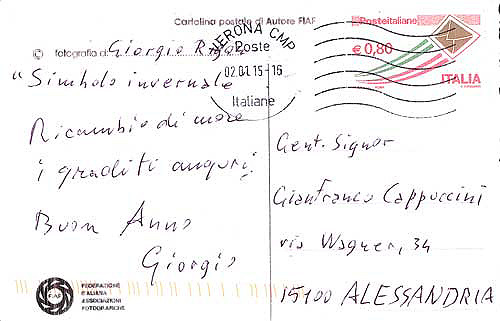 Cartolina postale di Autore FIAF
© fotografia di Giorgio
"Simbolo invernale
Ricambio di more
i graditi auguri
Buon Anno
Giorgio
FIAF
FEDERAZIONE
ITALIANA
ASSOCIAZIONI
FOTOGRAFICHE
VERONA CMP
Poste
02.01.15-15
Italiane
Posteitaliane
€ 0,80
ITALIA
Gent. Signor
Gianfranco Cappuccini
via Wagner, 34
15100 ALESSANDRIA